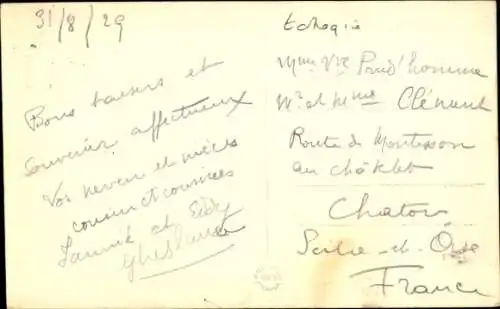 31/8/29
Bons baisers et
souvenir affectueux
Vos neveu et nièces
cousin et cousines
Yannik et Eddy
Ghislaine
Mme Vve Prud'homme
Mr et Mme Clément
Route de Montesson
au châklet
Chatou
Seine-et-Oise
France